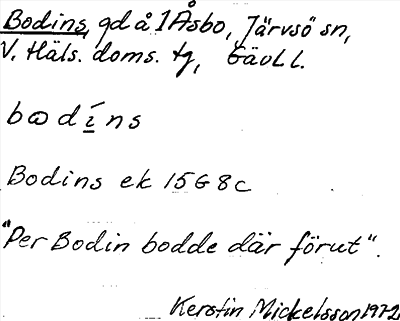 Bodins, gd å 1 Åsbo, Järvsö sn,
V. Häls. doms. tg, Gävl l.
bωdíns
Bodins ek 15G 8c
"Per Bodin bodde där förut".
Kerstin Mickelsson 1972